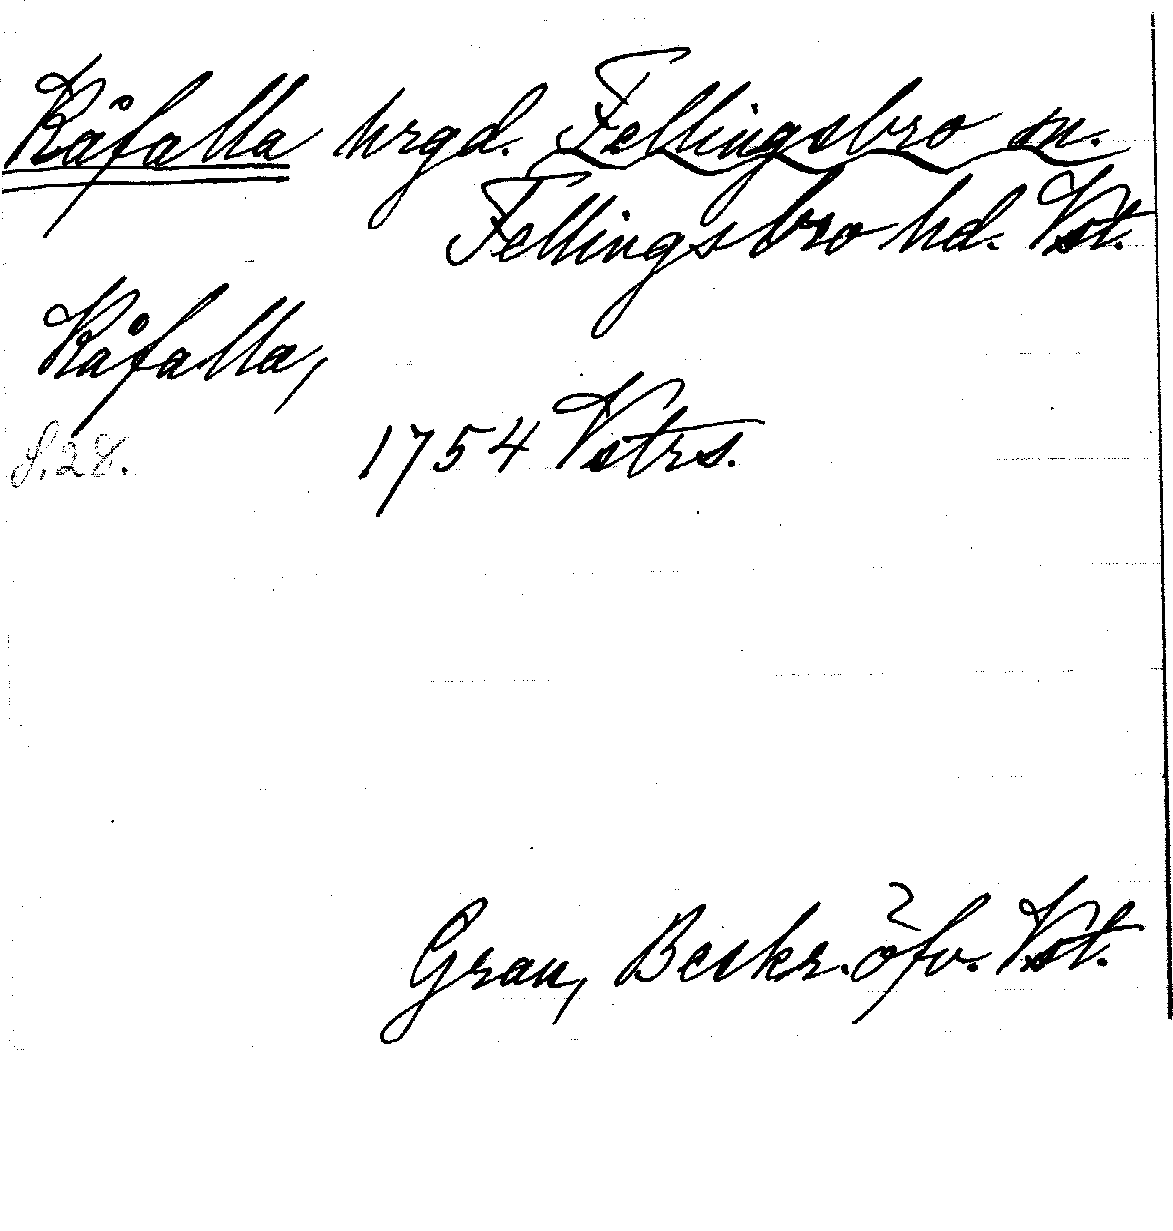 Kåfalla hrgd. Fellingsbro sn.
Fellingsbro hd. Vst.
Kåfalla,
S. 28. 1754 Vstrs.
Grau, Beskr. öfv. Vst.